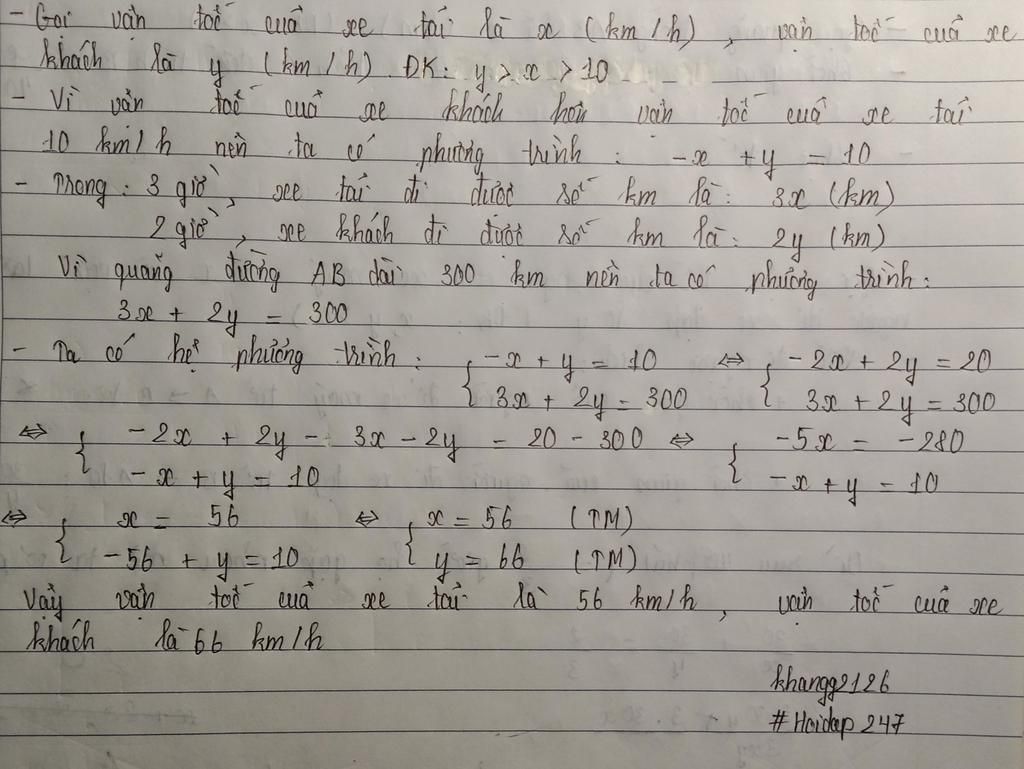 - Gọi vận tốc của xe tải là x (km/h), vận tốc của xe
khách là y (km/h) ĐK: y > x > 10
- Vì vận tốc của xe khách hơn vận tốc của xe tải
10 km/h nên ta có phương trình: -x + y = 10
- Trong: 3 giờ, xe tải đi được số km là: 3x (km)
2 giờ, xe khách đi được số km là: 2y (km)
Vì quãng đường AB dài 300 km nên ta có phương trình:
3x + 2y = 300
- Ta có hệ phương trình: { -x + y = 10 ⇔ { -2x + 2y = 20
3x + 2y = 300 3x + 2y = 300
⇔ { -2x + 2y - 3x - 2y = 20 - 300 ⇔ { -5x = -280
-x + y = 10 -x + y = 10
⇔ { x = 56 ⇔ { x = 56 (TM)
-56 + y = 10 y = 66 (TM)
Vậy vận tốc của xe tải là 56 km/h, vận tốc của xe
khách là 66 km/h
khangg2126
#Hoidap247